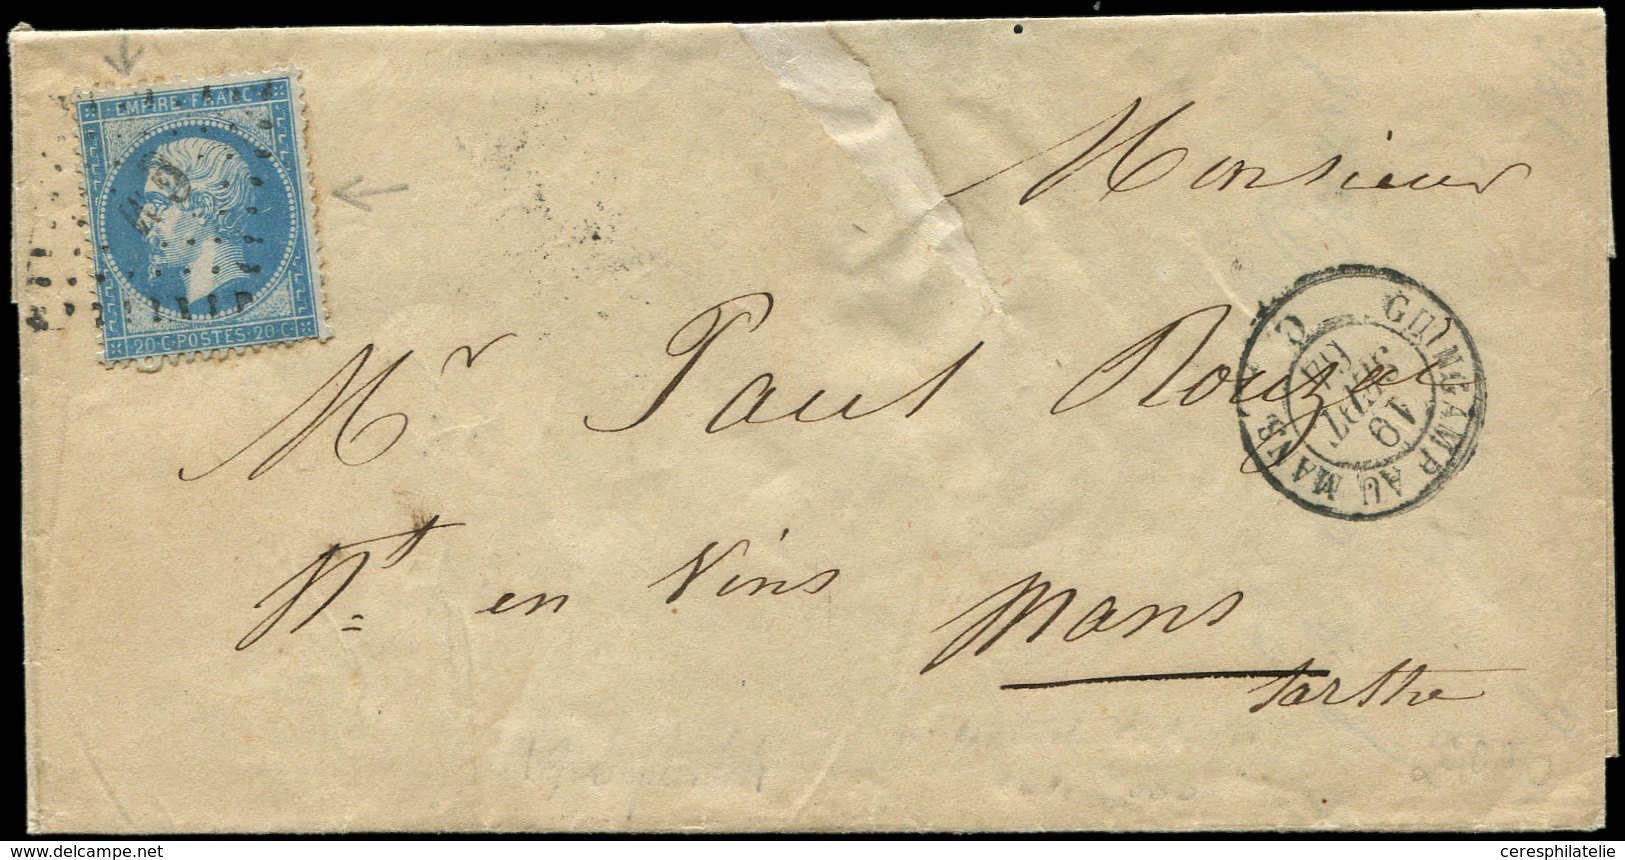 EMPIRE FRANC
20·C·POSTES·20·C
Monsieur
Mr Paul
GUINGAMP AU MANS
19
JUIL
Nt en Vins
Mans
Sarthe
www.delcampe.net
ceresphilatelie